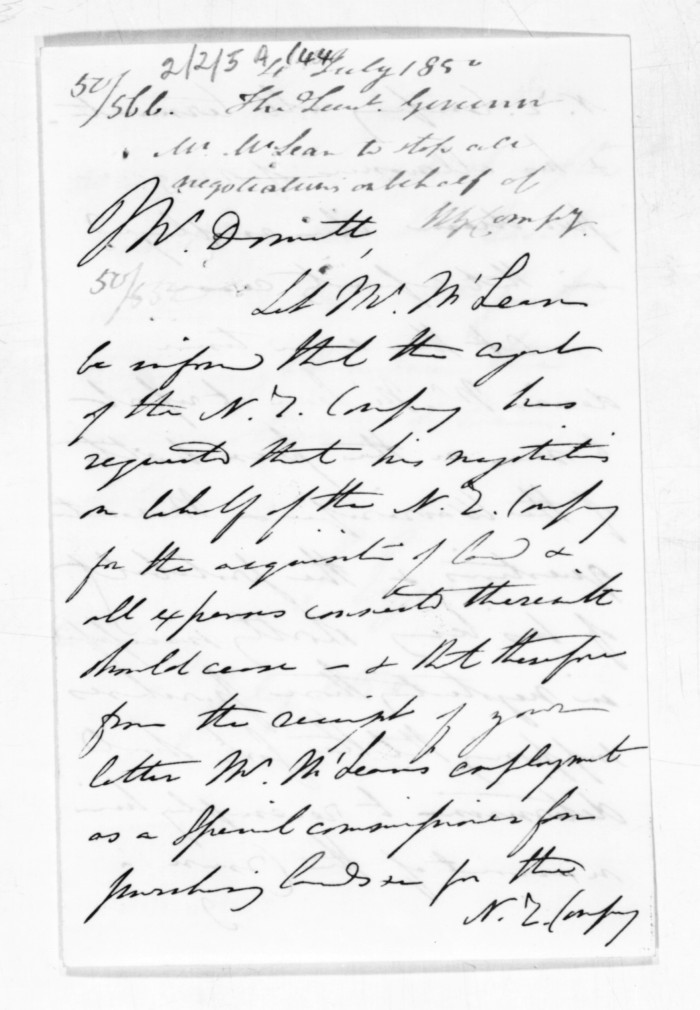 2/2/5 A (44)
4 July 1850
50/
/566. The Lieut. Governor
Mr. McLean to stop all
negotiations on behalf of
NZ Compy.
Mr. Domett,
50/
Let Mr. McLean
be informed that the agent
of the N. Z. Company has
requested that his negotiations
on behalf of the N. Z. Company
for the acquisition of land &
all expenses connected therewith
should cease — & that therefore
from the receipt of your
letter Mr. McLean's employment
as a Special commissioner for
purchasing lands &c for the
N. Z. Company